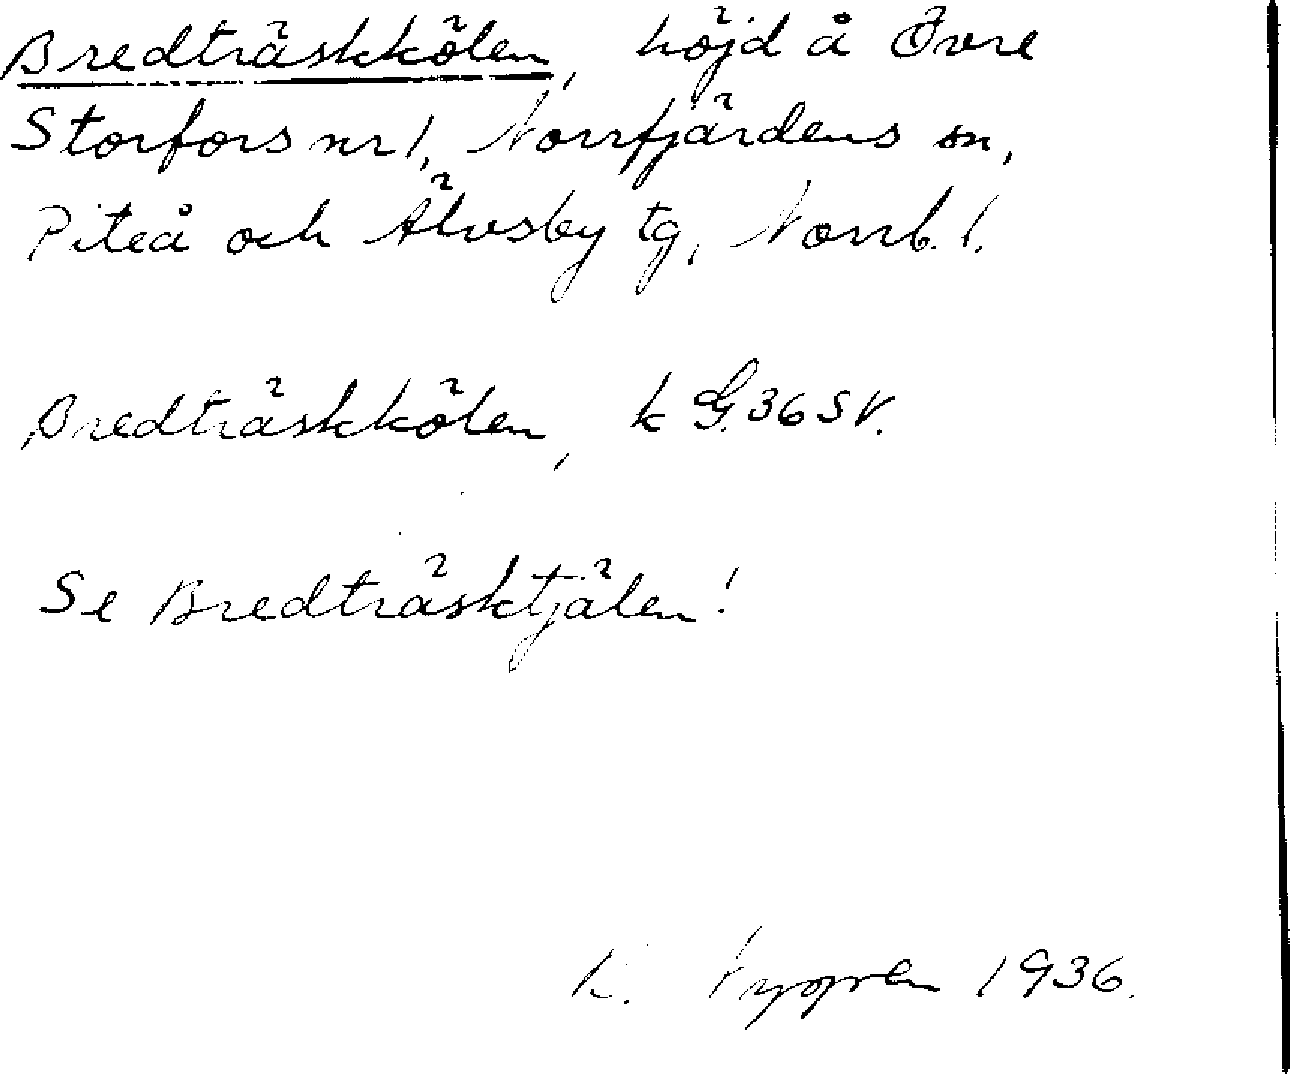 Bredträskkölen, höjd å Övre
Storfors nr 1, Norrfjärdens sn,
Piteå och Älvsby tg, Norrb. l.
Bredträskkölen, k G. 36 SV.
Se Bredträsktjälen!
K. 1936.